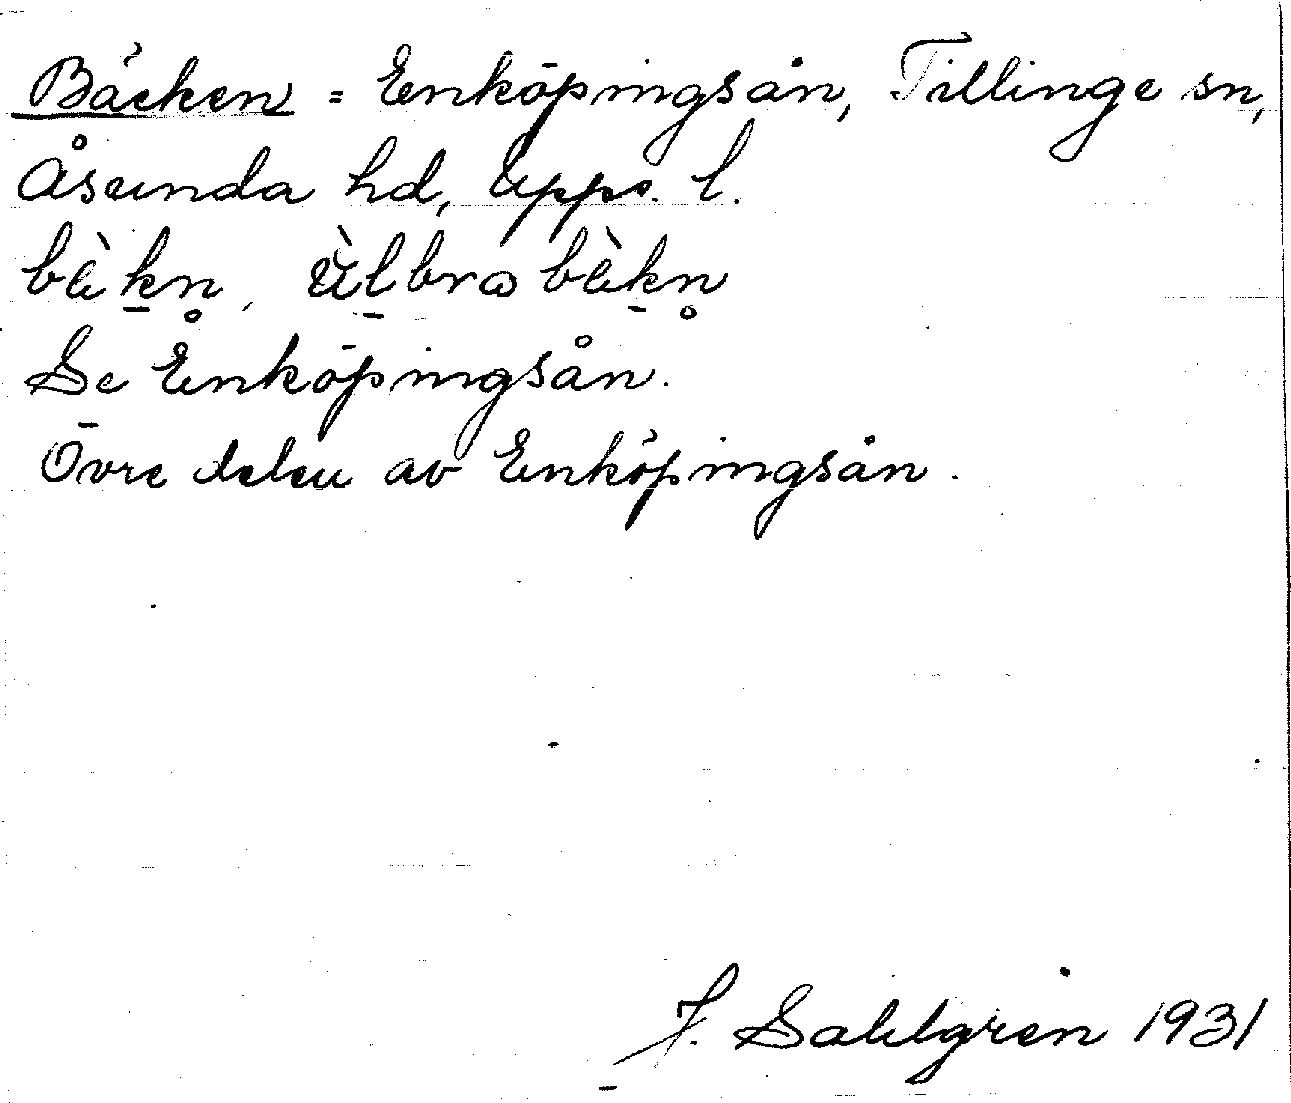 Bäcken = Enköpingsån, Tillinge sn,
Åsunda hd, Upps. l.
bèkn̥, bèkn̥
Se Enköpingsån.
Övre delen av Enköpingsån.
J. Sahlgren 1931